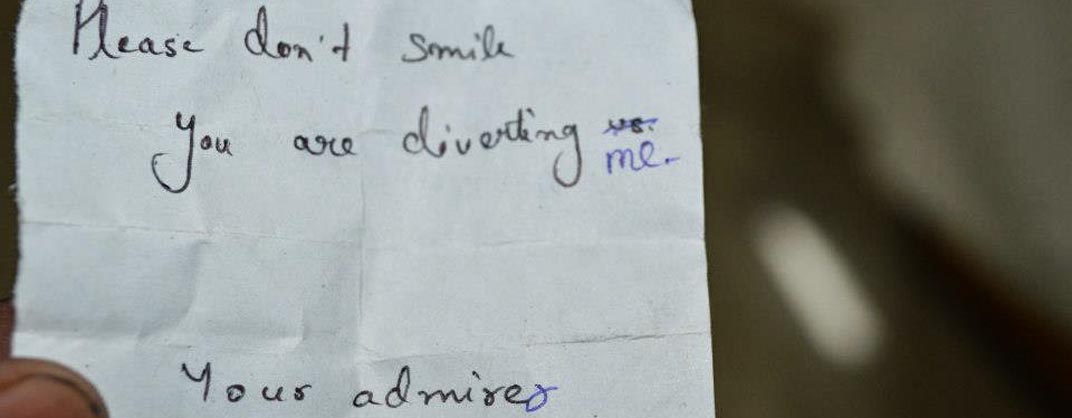 Please don't smile
You are diverting us.
me.
Your admirer